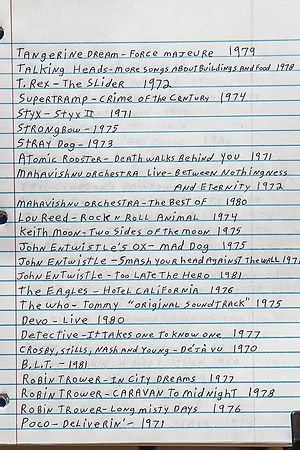 Tangerine Dream - Force Majeure 1979
Talking Heads - more songs about Buildings and Food 1978
T. Rex - The Slider 1972
Supertramp - Crime of the Century 1974
Styx - Styx II 1971
Strongbow - 1975
Stray Dog - 1973
Atomic Rooster - Death walks Behind you 1971
Mahavishnu orchestra Live - Between Nothingness
And Eternity 1972
mahavishnu orchestra - The Best of 1980
Lou Reed - Rock n Roll Animal 1974
Keith Moon - Two Sides of the moon 1975
John Entwistle's OX - Mad Dog 1975
John Entwistle - Smash your head Against The wall 1971
John Entwistle - Too Late The Hero 1981
The Eagles - Hotel California 1976
The who - Tommy "original soundTrack" 1975
Devo - Live 1980
Detective - It Takes one To know one 1977
Crosby, Stills, Nash and Young - Déjà vu 1970
B.L.T. - 1981
Robin Trower - In City Dreams 1977
Robin Trower - CARAVAN To Midnight 1978
Robin Trower - Long misty Days 1976
Poco - Deliverin' - 1971